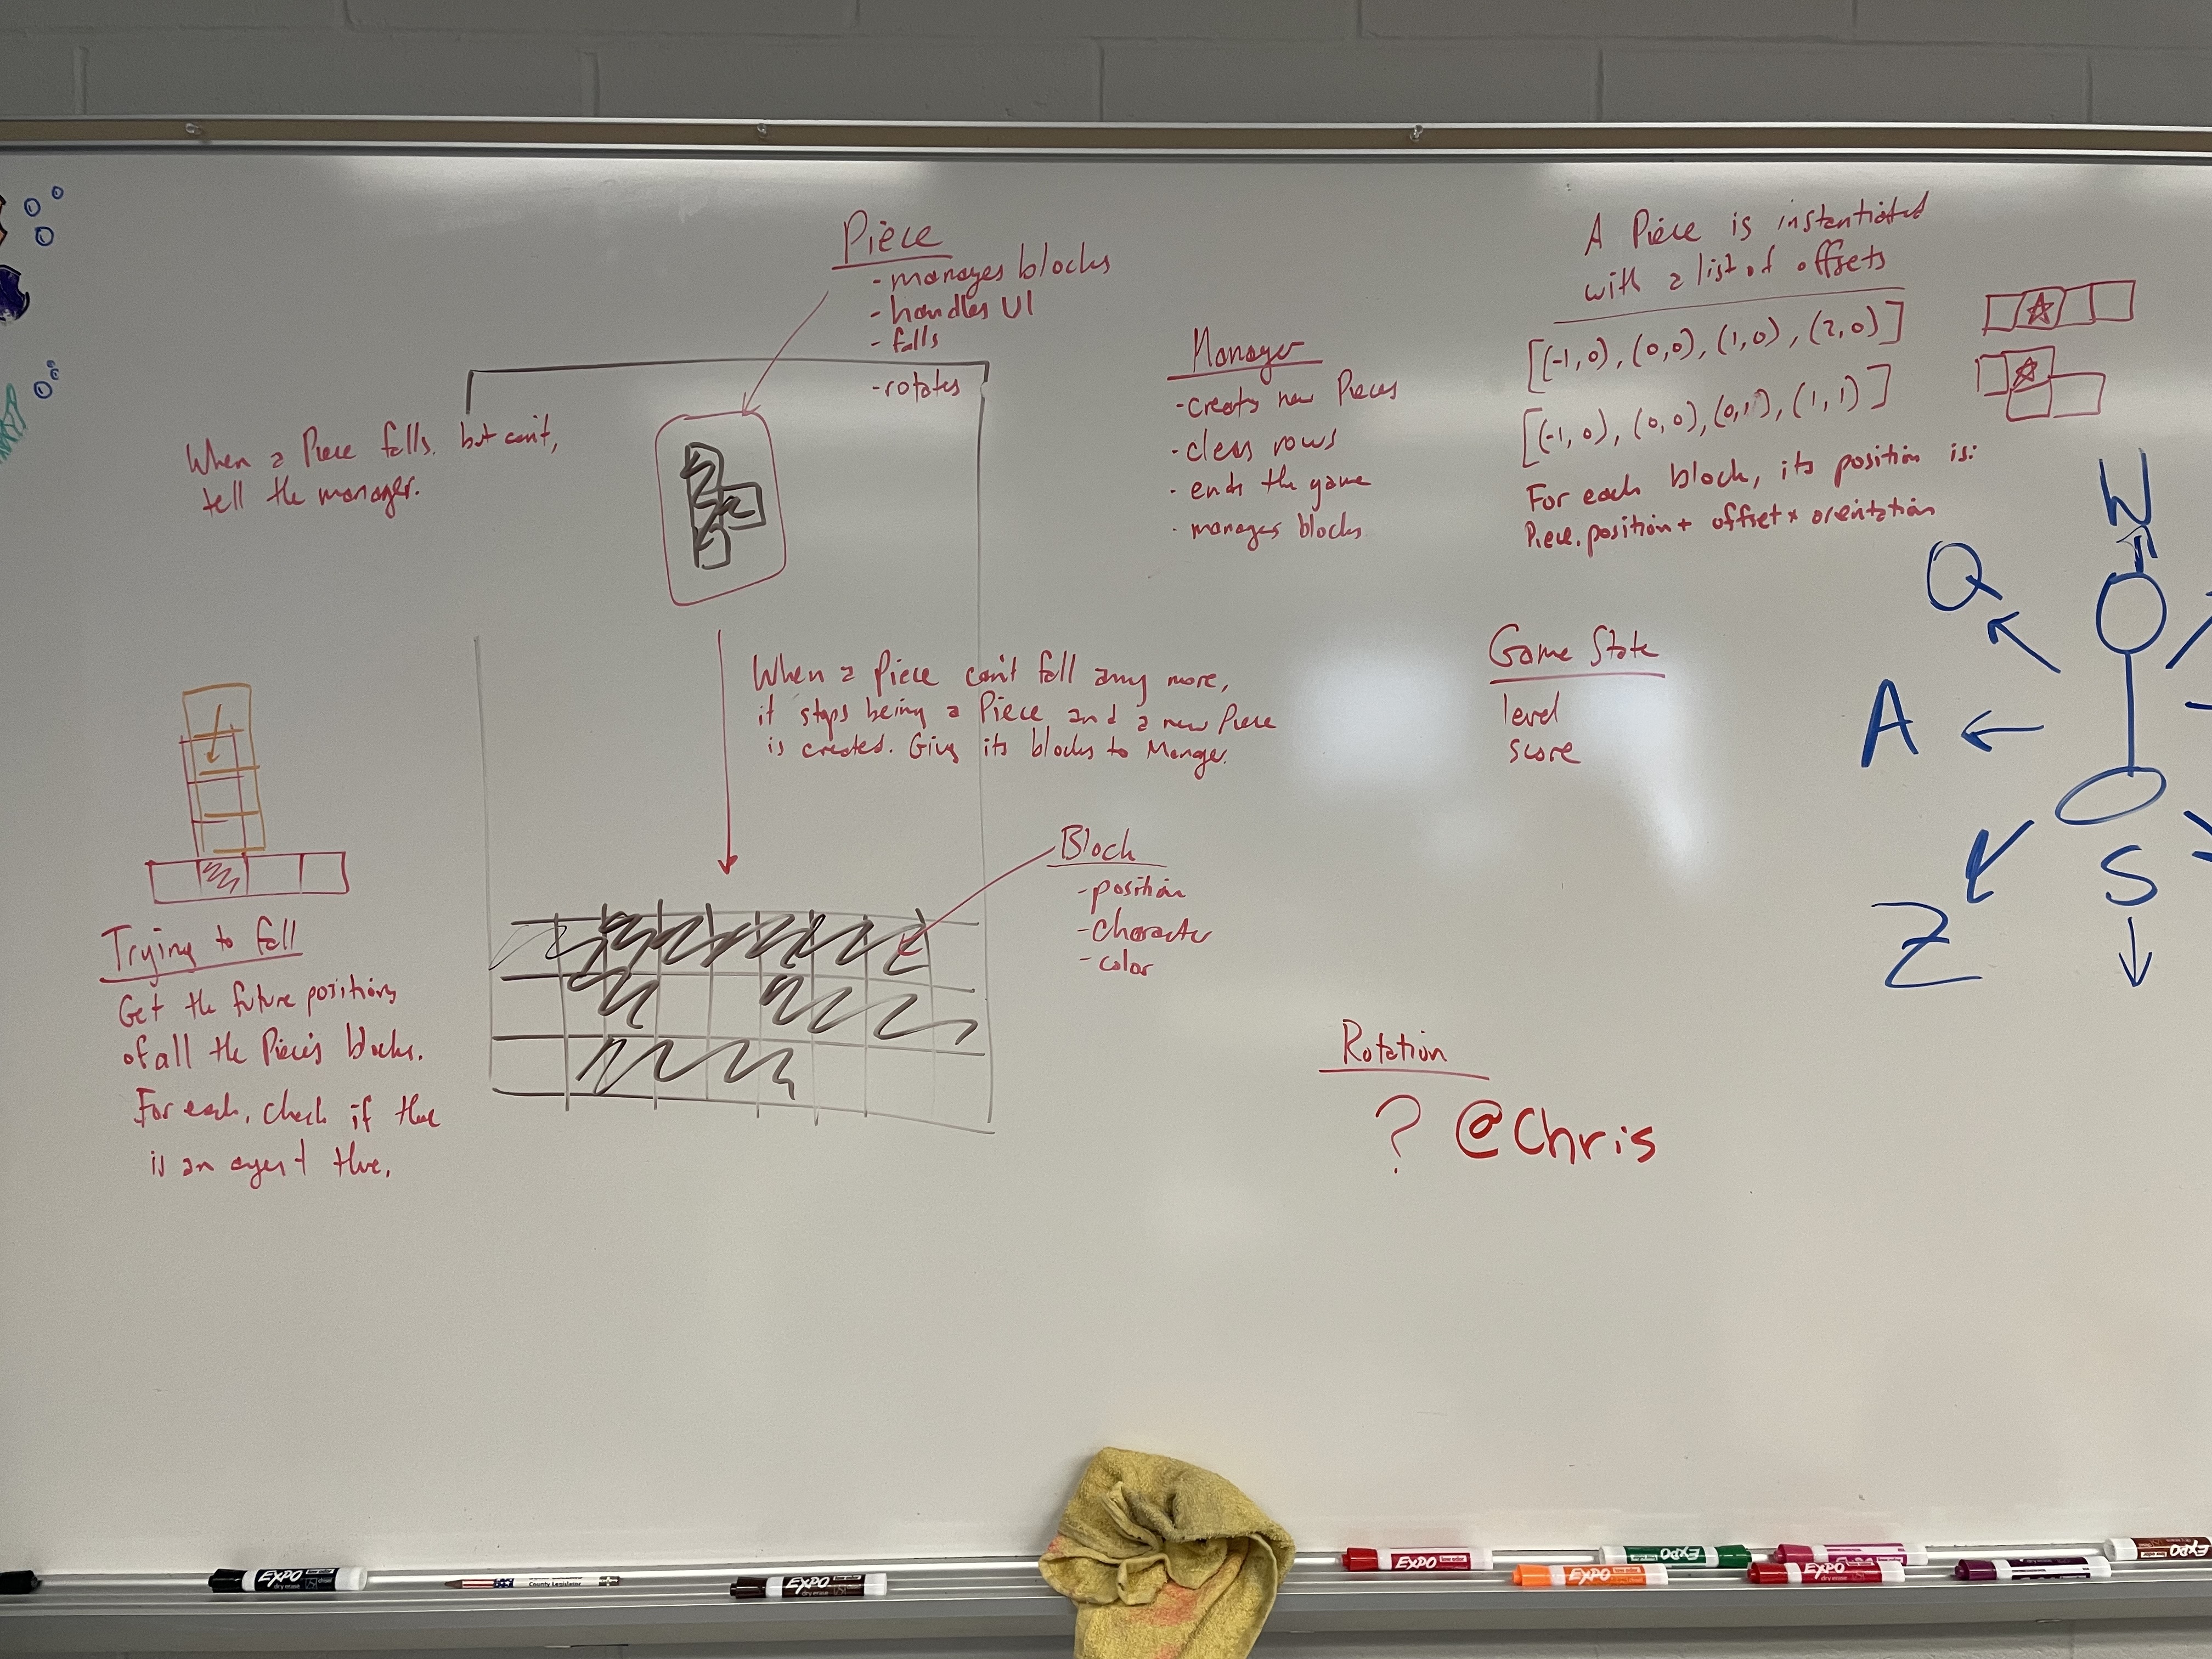 Piece
- manages blocks
- handles UI
- falls
- rotates
When a Piece falls, but can't,
tell the manager.
Manager
- creates new Pieces
- clears rows
- ends the game
- manages blocks
A Piece is instantiated
with a list of offsets
[(-1, 0), (0,0), (1,0), (2,0)]
[(-1, 0), (0,0), (0,1), (1,1)]
For each block, its position is:
Piece.position + offset * orientation
When a Piece can't fall any more,
it stops being a Piece and a new Piece
is created. Give its blocks to Manger.
Game State
level
score
Block
- position
- character
- color
Trying to fall
Get the future positions
of all the Piece's blocks.
For each, check if there
is an agent there.
Rotation
? @Chris
W
Q
A
Z
S
EXPO
dry erase
County Legislator
EXPO
dry erase
EXPO
EXPO
EXPO
EXPO